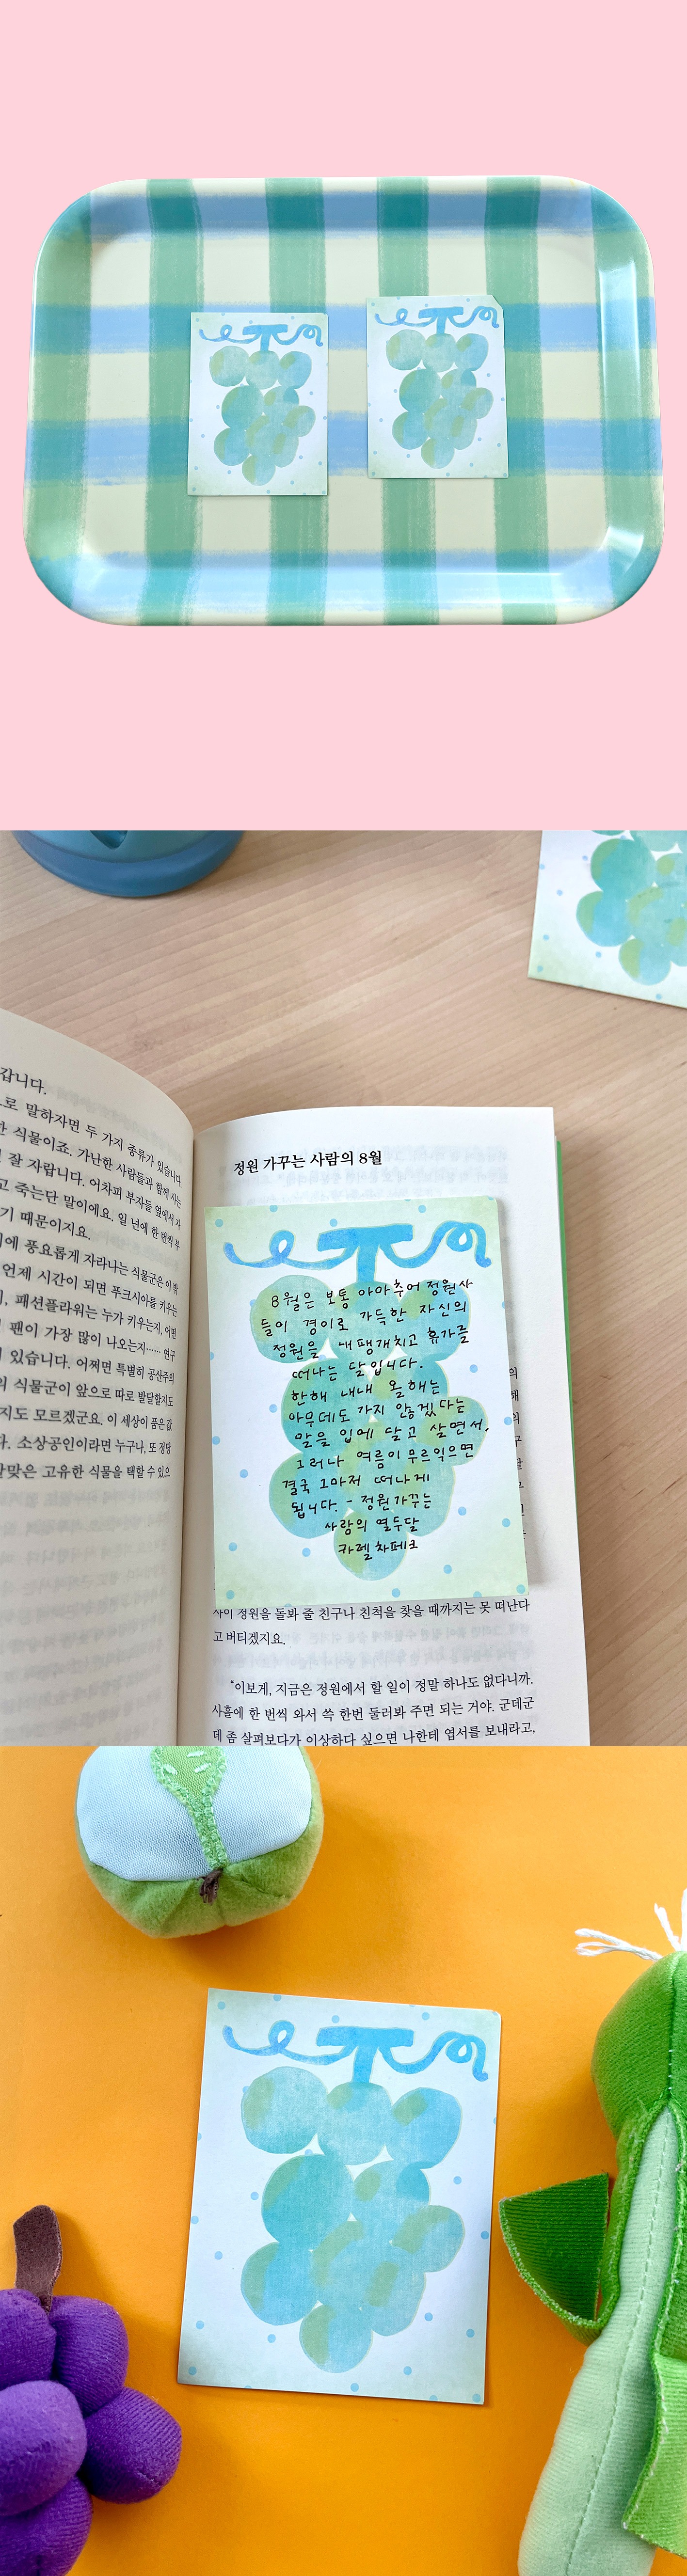 갑니다.
로 말하자면 두 가지 종류가 있습니다.
한 식물이죠. 가난한 사람들과 함께 사는
잘 자랍니다. 어차피 부자들 옆에서 자
고 죽는단 말이에요. 일 년에 한 번씩 부
기 때문이지요.
에 풍요롭게 자라나는 식물군은 이 밖
언제 시간이 되면 푸크시아를 키우는
, 패션플라워는 누가 키우는지, 어떤
팬이 가장 많이 나오는지…… 연구
있습니다. 어쩌면 특별히 공산주의
의 식물군이 앞으로 따로 발달할지도
지도 모르겠군요. 이 세상이 품은 값
다. 소상공인이라면 누구나, 또 정당
알맞은 고유한 식물을 택할 수 있으
정원 가꾸는 사람의 8월
8월은 보통 아마추어 정원사
들이 경이로 가득한 자신의
정원을 내팽개치고 휴가를
떠나는 달입니다.
한해 내내 올해는
아무데도 가지 않겠다는
말을 입에 달고 살면서.
그러나 여름이 무르익으면
결국 그마저 떠나게
됩니다. - 정원가꾸는
사람의 열두달
카렐 차페크
사이 정원을 돌봐 줄 친구나 친척을 찾을 때까지는 못 떠난다
고 버티겠지요.
“이보게, 지금은 정원에서 할 일이 정말 하나도 없다니까.
사흘에 한 번씩 와서 쓱 한번 둘러봐 주면 되는 거야. 군데군
데 좀 살펴보다가 이상하다 싶으면 나한테 엽서를 보내라고,